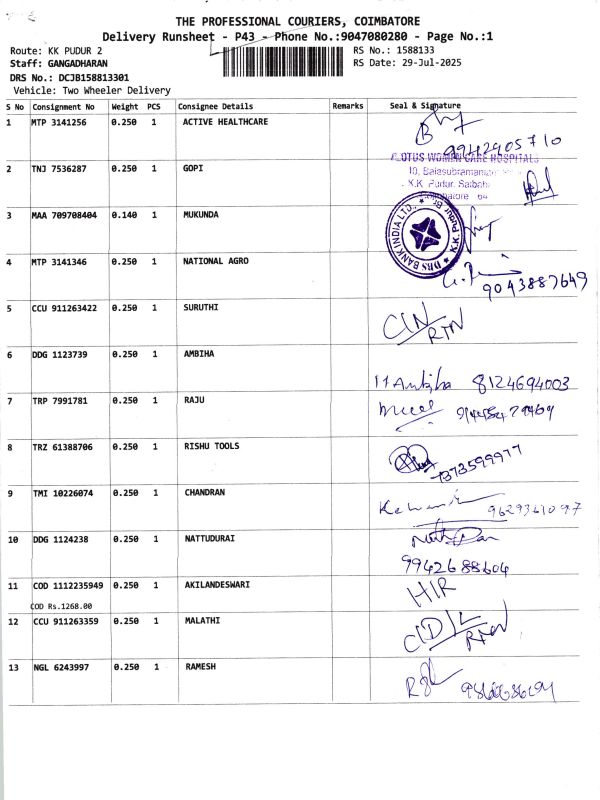 THE PROFESSIONAL COURIERS, COIMBATORE
Delivery Runsheet - P43 - Phone No.:9047080280 - Page No.:1
Route: KK PUDUR 2
RS No.: 1588133
Staff: GANGADHARAN
RS Date: 29-Jul-2025
DRS No.: DCJB158813301
Vehicle: Two Wheeler Delivery
S No Consignment No Weight PCS Consignee Details Remarks Seal & Signature
1 MTP 3141256 0.250 1 ACTIVE HEALTHCARE
9942905710
2 TNJ 7536287 0.250 1 GOPI
LOTUS WOMEN CARE HOSPITALS
10, Balasubramaniam
K.K. Pudur, Saibaba
Coimbatore 64
3 MAA 709708404 0.140 1 MUKUNDA
DRS BANK INDIA LTD., K.K. Pudur Br.
4 MTP 3141346 0.250 1 NATIONAL AGRO
9043887649
5 CCU 911263422 0.250 1 SURUTHI
C/N
RTN
6 DDG 1123739 0.250 1 AMBIHA
8124694003
7 TRP 7991781 0.250 1 RAJU
8 TRZ 61388706 0.250 1 RISHU TOOLS
7373599977
9 TMI 10226074 0.250 1 CHANDRAN
9629341097
10 DDG 1124238 0.250 1 NATTUDURAI
9942688604
11 COD 1112235949 0.250 1 AKILANDESWARI
H/R
COD Rs.1268.00
12 CCU 911263359 0.250 1 MALATHI
C/D/L
RTN
13 NGL 6243997 0.250 1 RAMESH